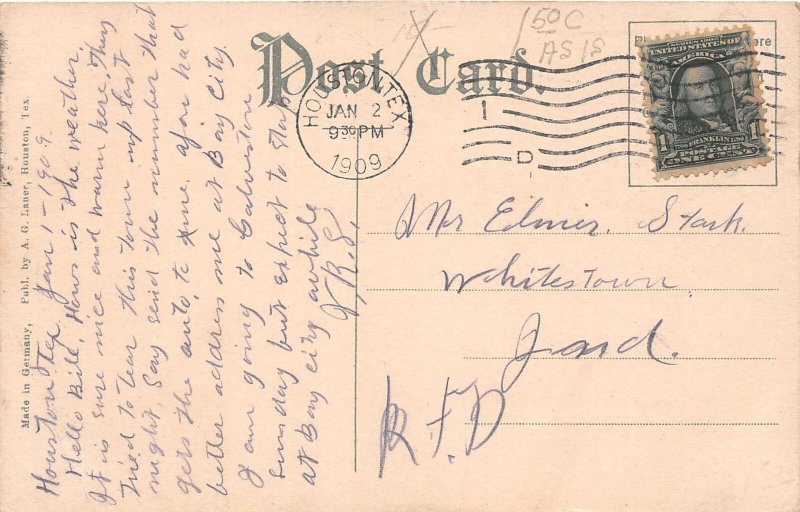 Post Card.
50C
AS IS
HOUSTON, TEX.
JAN 2
9 30 PM
1909
I
D
UNITED STATES OF AMERICA
1 1
FRANKLIN
POSTAGE
ONE CENT
Mr Elmer. Stark.
Whitestown
Ind.
R.F.D
Houston Tex Jan. 1 - 1909.
Hello Bill, Hows is the weather,
It is sure nice and warm here, They
tried to tear this town up last
night, Say send the number that
gets the auto, to me. if you had
better address me at Bay City.
I am going to Galveston
Sunday but expect to stay
at Bay city awhile
J.R.S.
Made in Germany. Publ. by A. G. Lauer, Houston, Tex